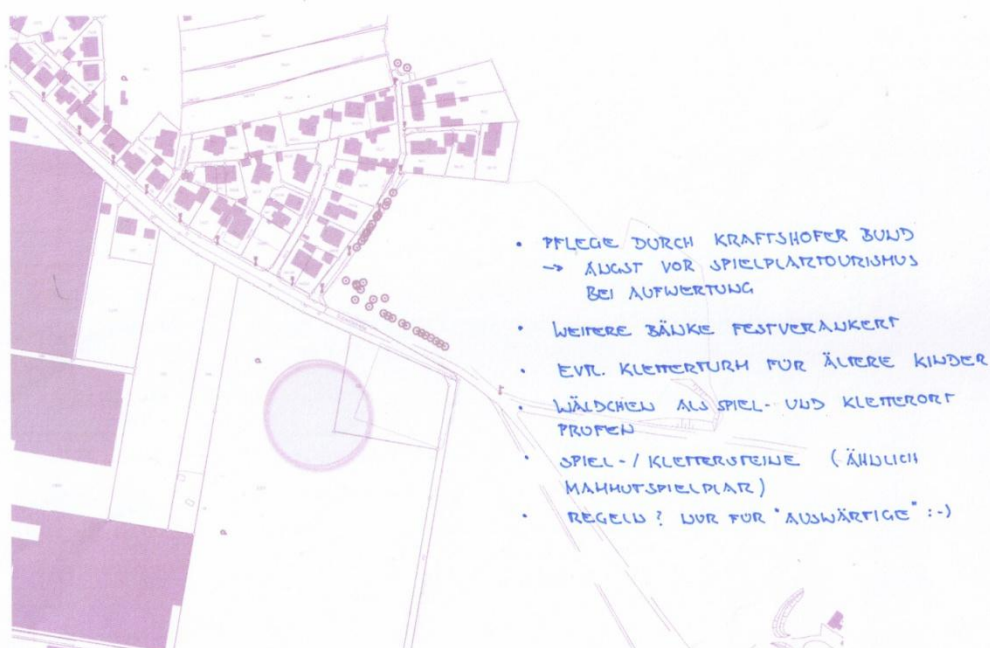 • PFLEGE DURCH KRAFTSHOFER BUND
→ ANGST VOR SPIELPLATZTOURISMUS
BEI AUFWERTUNG
• WEITERE BÄNKE FESTVERANKERT
• EVTL. KLETTERTURM FÜR ÄLTERE KINDER
• WÄLDCHEN ALS SPIEL- UND KLETTERORT
PRÜFEN
• SPIEL-/KLETTERSTEINE (ÄHNLICH
MAMMUTSPIELPLATZ)
• REGELN? NUR FÜR "AUSWÄRTIGE" :-)